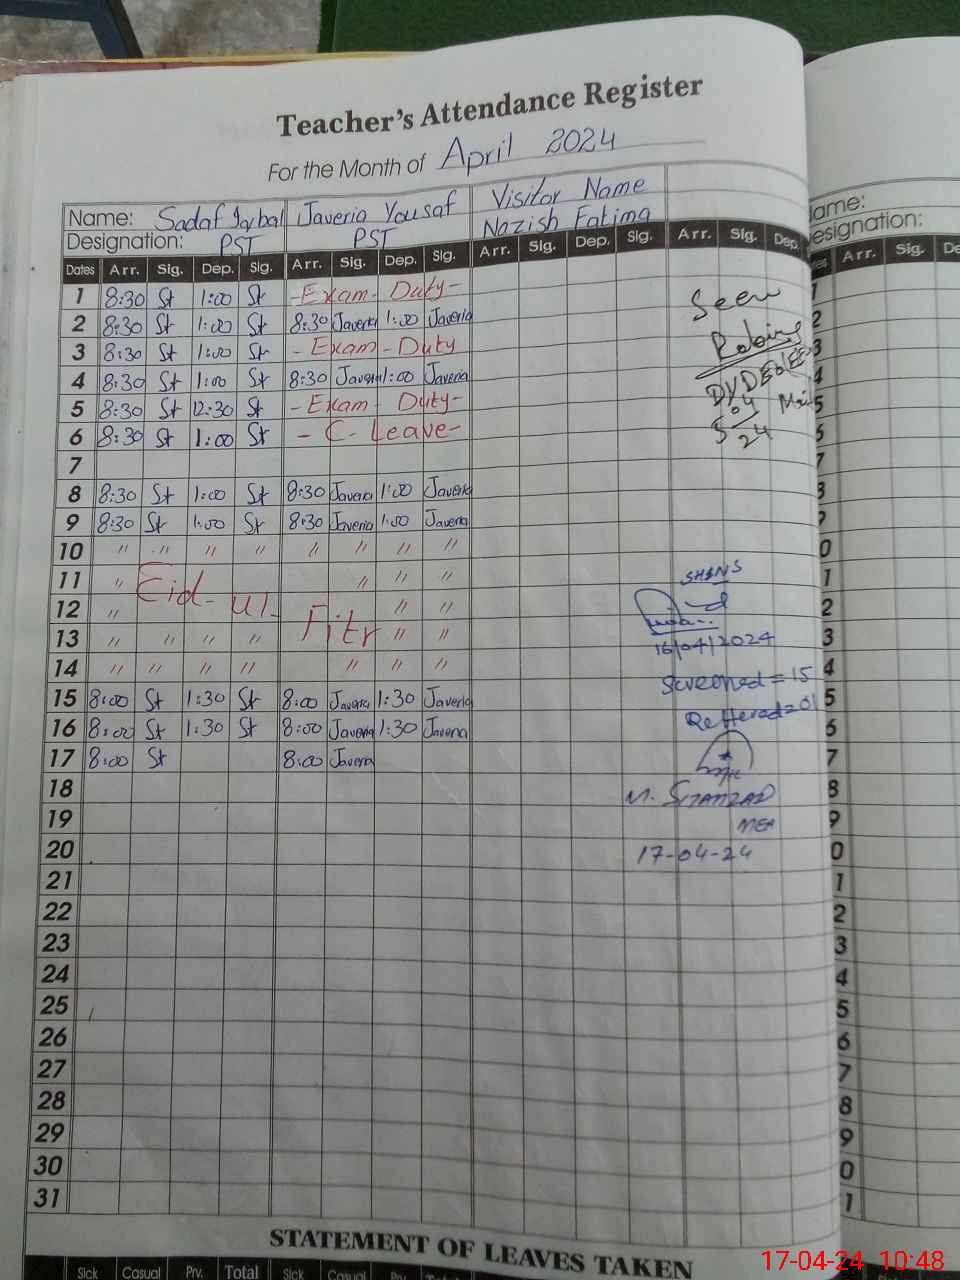 Teacher's Attendance Register
For the Month of April 2024
Name: Sadaf Iqbal Javeria Yousaf Visitor Name
Designation: PST PST Nazish Fatima
Dates Arr. Sig. Dep. Sig. Arr. Sig. Dep. Sig. Arr. Sig. Dep. Sig. Arr. Sig. Dep.
1 8:30 St 1:00 St - Exam - Duty -
2 8:30 St 1:00 St 8:30 Javeria 1:00 Javeria
3 8:30 St 1:00 St - Exam - Duty
4 8:30 St 1:00 St 8:30 Javeria 1:00 Javeria
5 8:30 St 12:30 St - Exam - Duty -
6 8:30 St 1:00 St - C. Leave -
7
8 8:30 St 1:00 St 8:30 Javeria 1:00 Javeria
9 8:30 St 1:00 St 8:30 Javeria 1:00 Javeria
10 〃 〃 〃 〃 〃 〃 〃 〃
11 〃 Eid - ul - 〃 〃 〃
12 〃 Fitr 〃 〃
13 〃 〃 〃 〃 〃 〃
14 〃 〃 〃 〃 〃 〃 〃
15 8:00 St 1:30 St 8:00 Javeria 1:30 Javeria
16 8:00 St 1:30 St 8:00 Javeria 1:30 Javeria
17 8:00 St 8:00 Javeria
18
19
20
21
22
23
24
25
26
27
28
29
30
31
Seen
SH&NS
16/04/2024
Screened = 15
Reffered = 01
MEA
17-04-24
STATEMENT OF LEAVES TAKEN
Sick Casual Prv. Total Sick Casual
ame:
esignation:
Arr. Sig. De
17-04-24 10:48